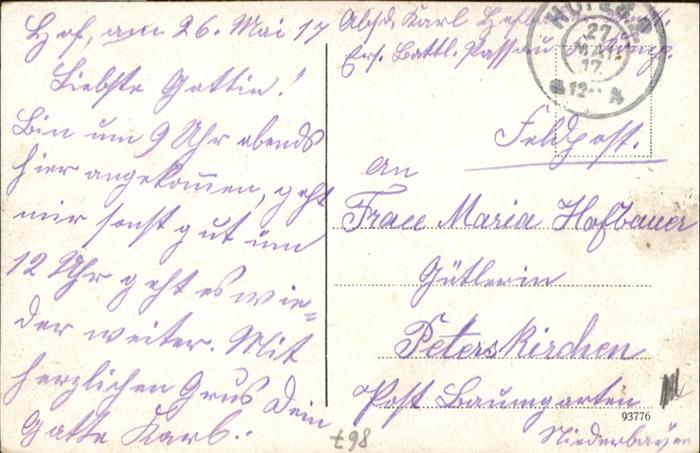 Hof, am 26. Mai 17
Liebste Gattin!
Bin um 9 Uhr abends
hier angekommen, geht
mir sonst gut um
12 Uhr geht es wie-
der weiter. Mit
herzlichen Grus Dein
Gatte Karl..
Absd. Karl
Ers. Battl. Passau
27
MAI
17.
12
Feldpost.
An
Frau Maria Hofbauer
Gütlerin
Peterskirchen
Post Baumgarten
93776
Niederbayern
£98